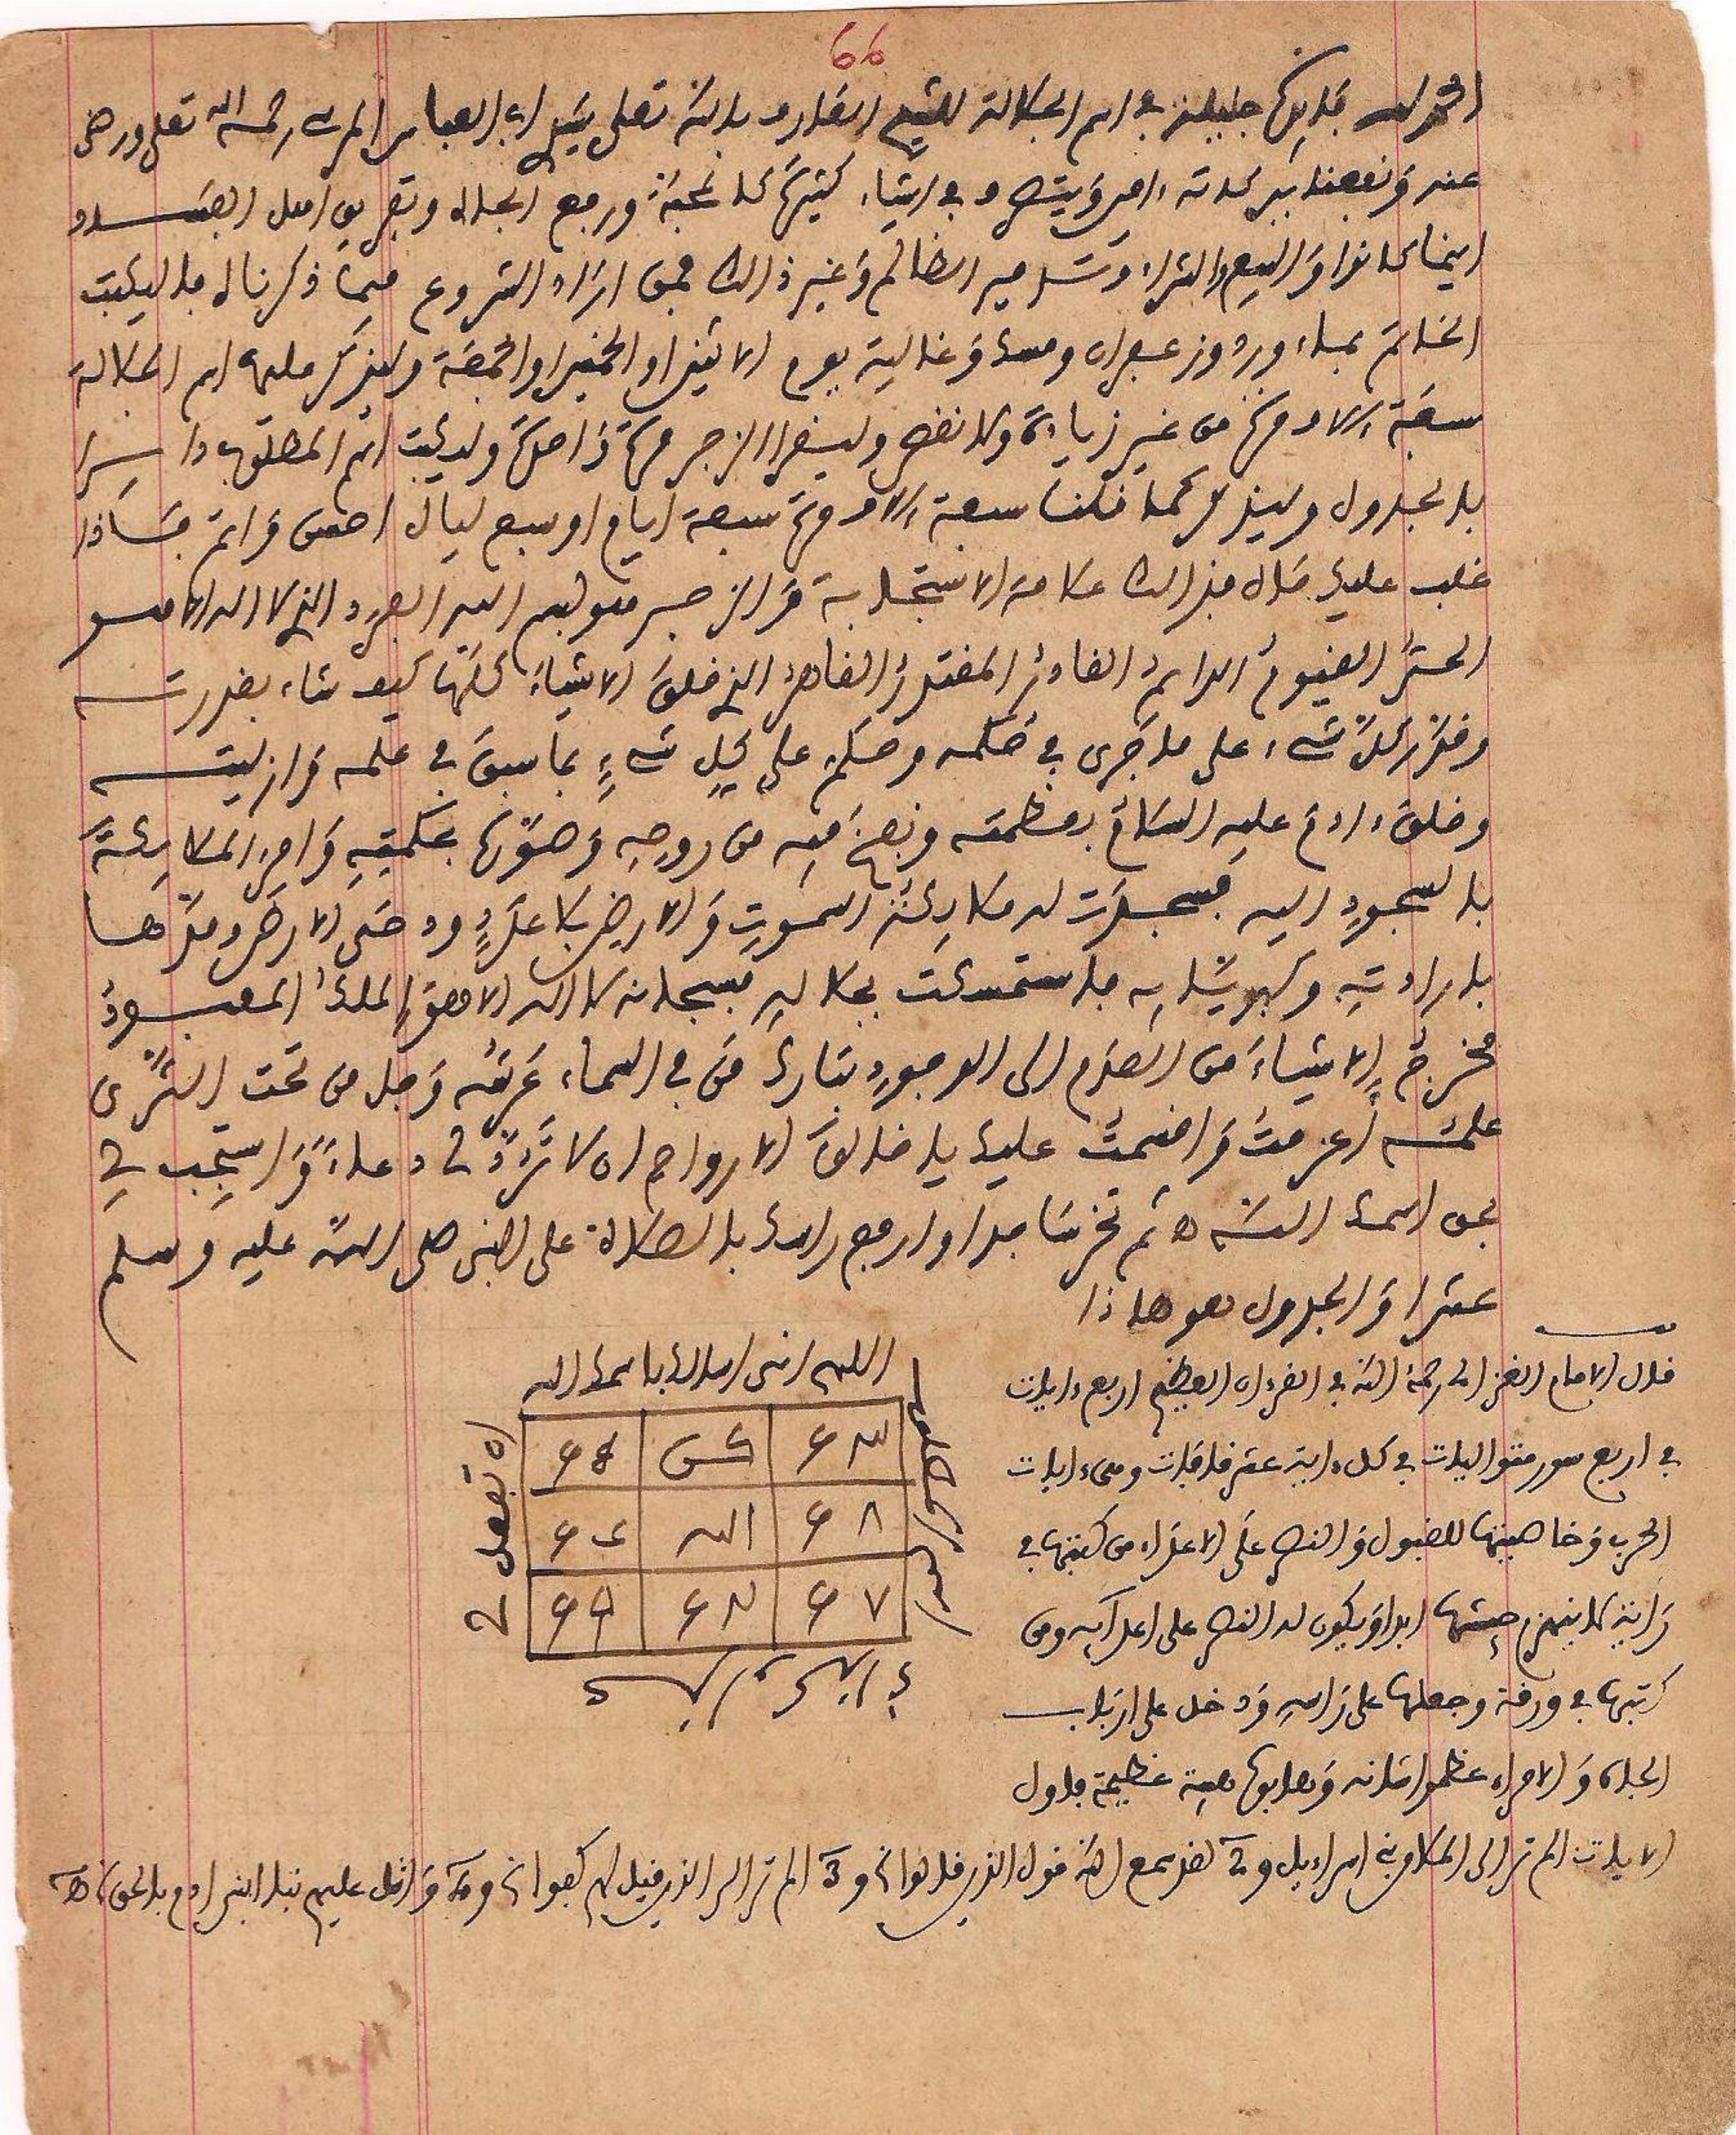 66
الحمد لله فايدة جليلة في اسم الجلالة للشيخ العارف بالله تعلى سيد ابي العباس المرسي رحمه الله تعلى ورضي
عنه ونفعنا ببركاته ءامين ويتصرف في اشياء كثيرة كالمحبة ورفع الجلال وتفريق اهل الفساد
اينما كانوا والبيع والشراء وتسخير الظالم وغير ذالك فمن اراد الشروع فيما ذكرنا له فاليكتب
الخاتم بماء ورد وزعفران ومسك وغالية يوم الاثنين او الخميس او الجمعة وليذكر عليه اسم الجلالة
سبعة ءالاف مرة من غير زيادة ولا نقص وليقرا الزجر مرة واحدة وليكتب اسم المطلوب داير
بالجدول وليذكر كما قلنا سبعة ءالاف مرة سبعة ايام او سبع ليال احسن واتم فاذا
غلب عليك حال فذالك علامة الاستجابة والزجر هو بسم الله الفرد الذي لا اله الا هو
الحي القيوم الدايم القادر المقتدر القاهر الذي خلق الاشياء كلها كيف شاء بقدرته
وقدر كل شيء على ما جرى في حكمه وحكم على كل شيء بما سبق في علمه وازليته
وخلق ءادم عليه السلام بعظمته ونفخ فيه من روحه وصوره بحكمته وامر الملائكة
بالسجود اليه فسجدت له ملائكة السموت والارض بلا عدد ودحى الارض ومدها
بارادته وكبريائه فاستمسكت بجلاله فسبحانه لا اله الا هو الملك المعبود
مخرج الاشياء من العدم الى الوجود تبارك من في السماء عرشه وجل من تحت الثرى
علمه اعزمت واقسمت عليك يا خالق الارواح ان لا ترد لي دعاء واستجب لي
بحق اسمك الله ه ثم تخر ساجدا وارفع راسك بالصلاة على النبي صلى الله عليه وسلم
عشرا والجدول هو هاذا
قال الامام الغزالي رحمه الله في القرءان العظيم اربع ءايات
في اربع سور متواليات في كل ءاية عشر قافات وهي ءايات
الحرب وخاصيتها للقبول والنصر على الاعداء من كتبها في
راية لا ينهزم جيشها ابدا ويكون له النصر على اعدآيه ومن
كتبها في ورقة وجعلها على راسه ودخل على ارباب
الجاه والامراء عظموا شانه وهابوه هيبة عظيمة فاول
الايات الم تر الى الملا من بني اسراءيل و2 لقد سمع الله قول الذين قالوا و3 الم تر الى الذين قيل لهم كفوا و4 واتل عليهم نبا ابني ادم بالحق
اللهم اني اسالك باسمك الله
ان تفعل لي
الله
68
67